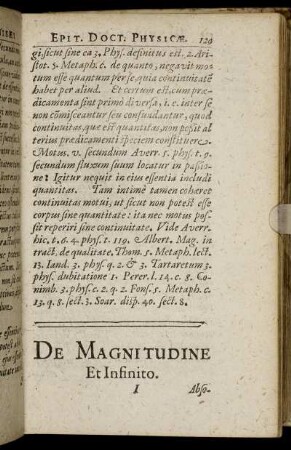 EPIT. DOCT. PHYSICÆ. 129
gi, sicut sine ea 3. Phys. definitus est. 2. Ari-
stot. 5. Metaph. c. de quanto, negavit mo-
tum esse quantum per se, quia continuitatē
habet per aliud. Et certum est, cum præ-
dicamenta sint primò diversa, i. e. inter se
non cōmisceantur seu confundantur, quod
continuitas, quæ est quantitas, non possit al-
terius prædicamenti speciem constituere.
Motus. v. secundum Averr. 5. phys. t. 9.
secundum fluxum suum locatur in passio-
ne: Igitur nequit in ejus essentia includi
quantitas. Tam intimè tamen cohæret
continuitas motui, ut sicut non potest esse
corpus sine quantitate: ita nec motus pos-
sit reperiri sine continuitate. Vide Averr.
hic. t. 6. 4. phys. t. 119. Albert. Mag. in
tract. de qualitate. Thom. 5. Metaph. lect.
15. Iand. 3. phys. q. 2. & 3. Tartaretum 3.
phys. dubitatione 1. Perer. l. 14. c. 8. Co-
nimb. 3. phys. c. 2. q. 2. Fons. 5. Metaph. c.
13. q. 8. sect. 3. Soar. disp. 40. sect. 8.
DE MAGNITUDINE
Et Infinito.
I Abso-